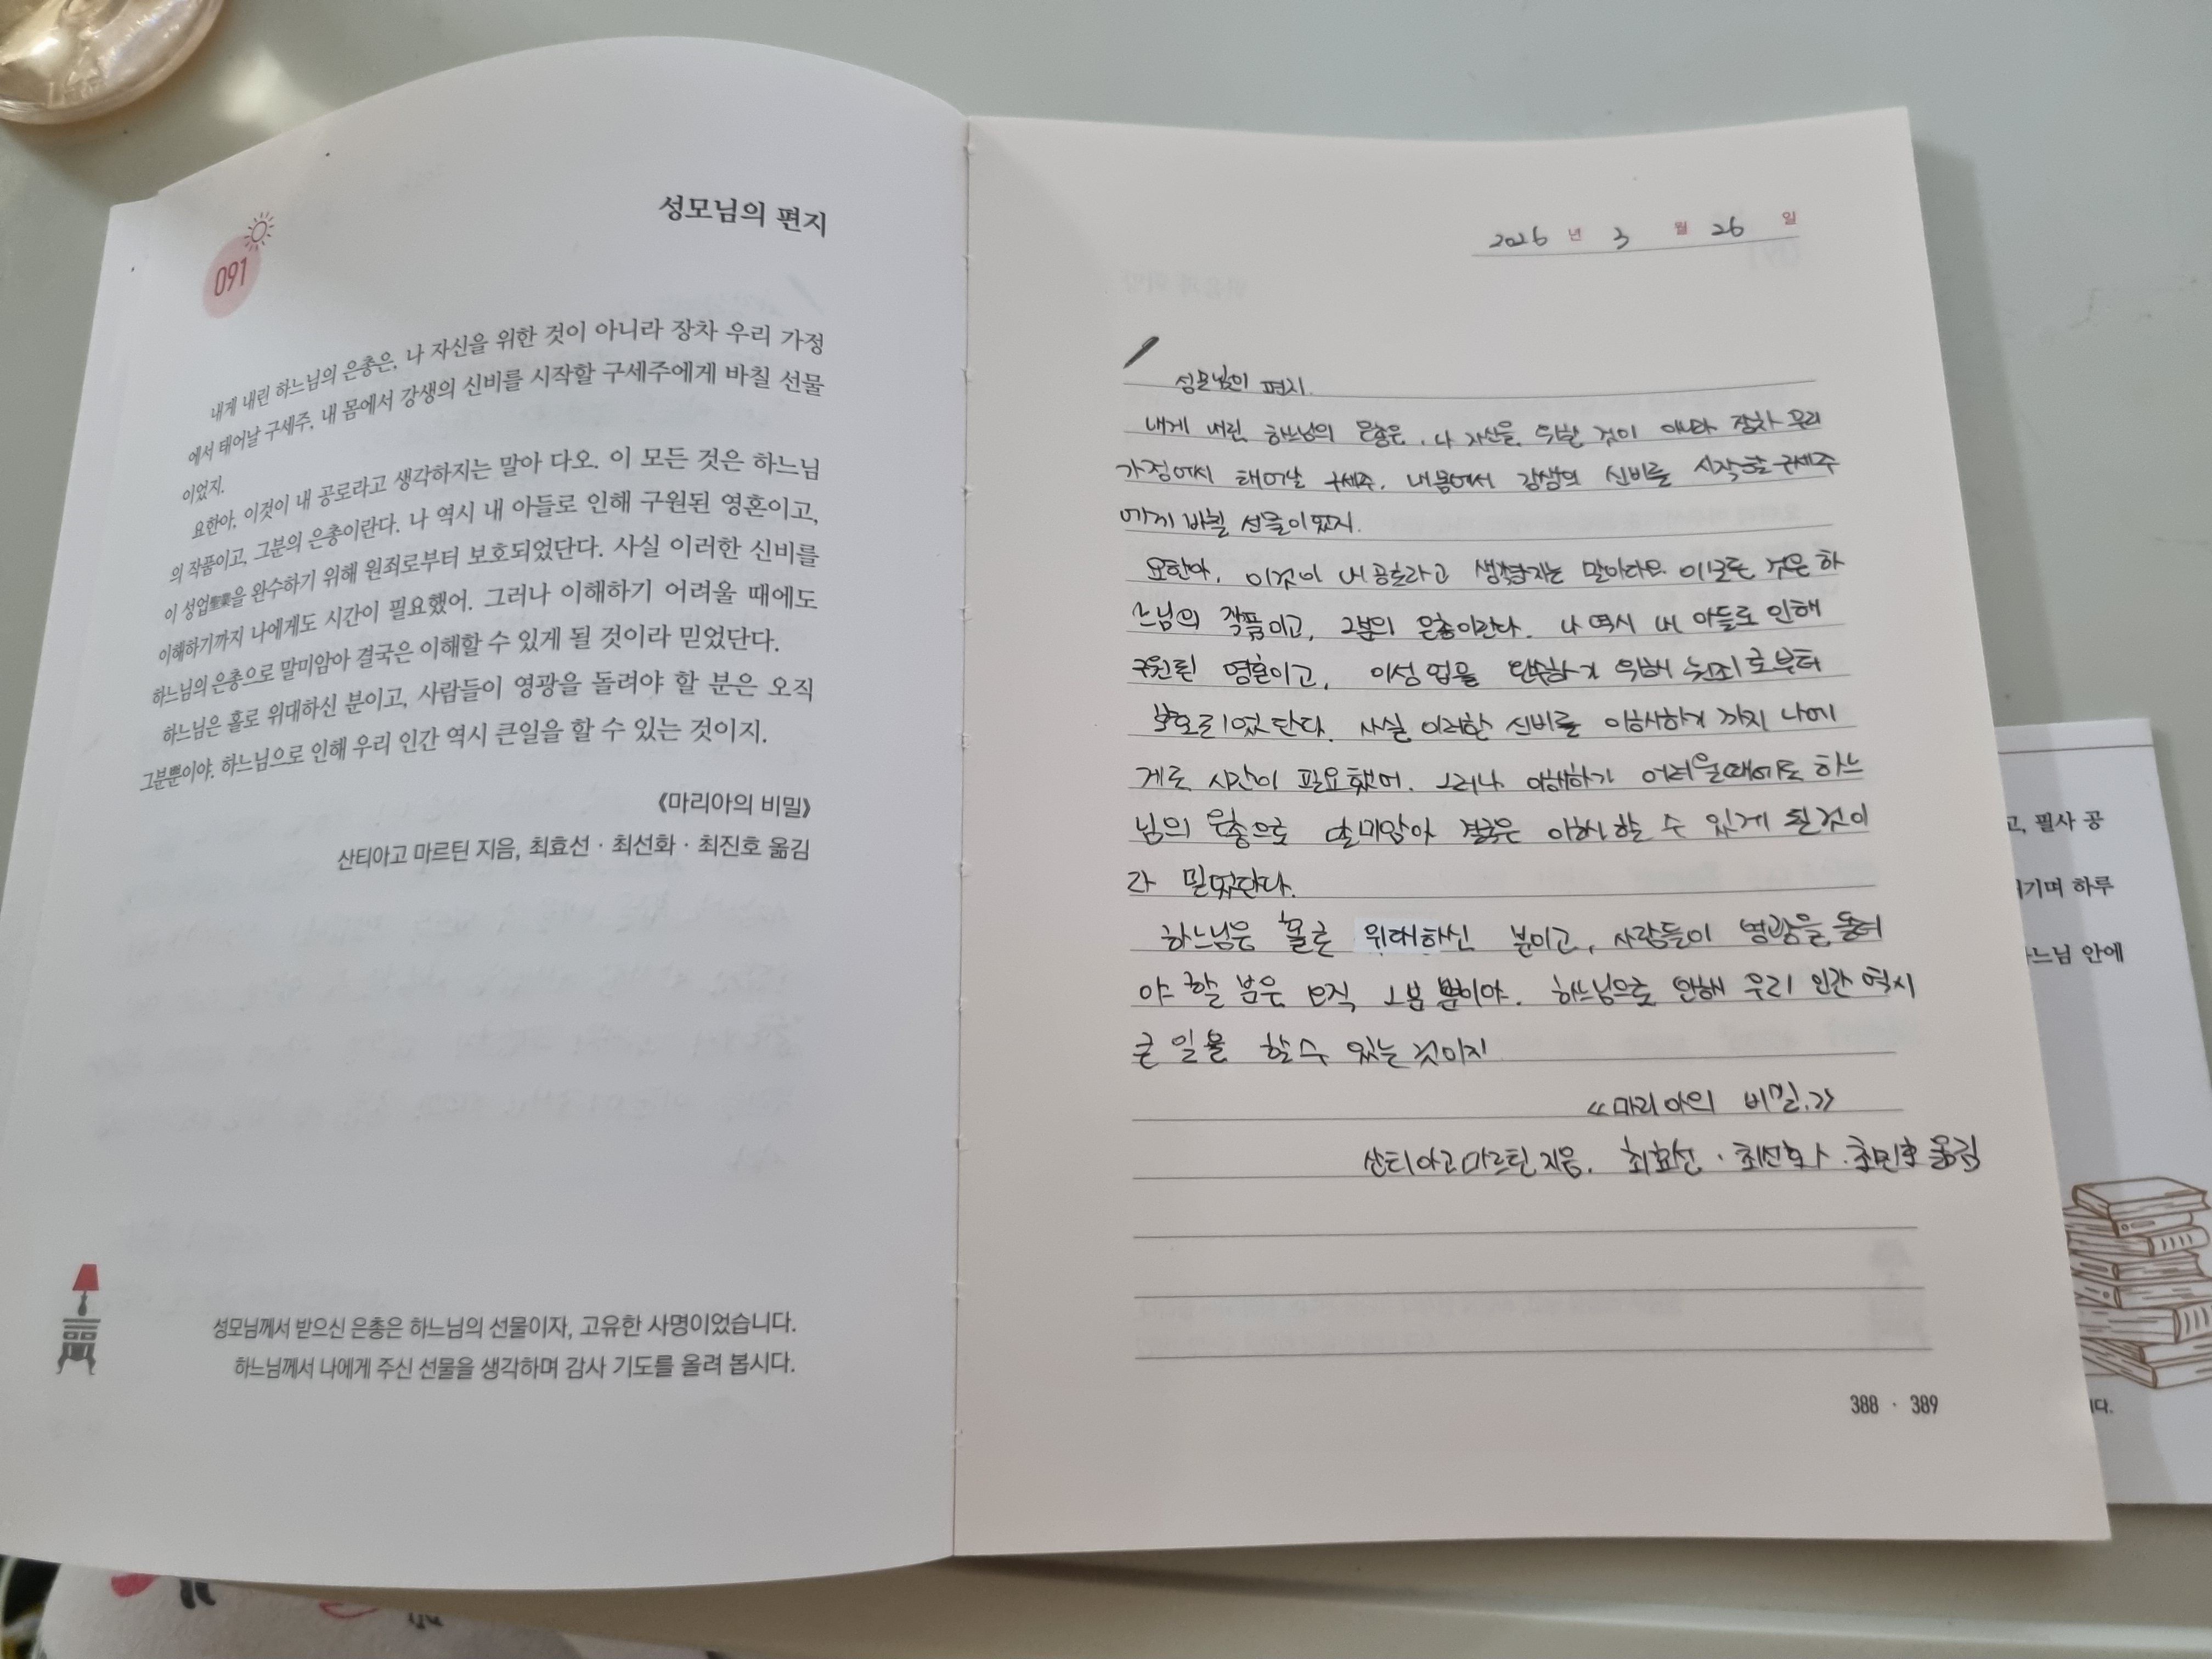 성모님의 편지
091
내게 내린 하느님의 은총은, 나 자신을 위한 것이 아니라 장차 우리 가정
에서 태어날 구세주, 내 몸에서 강생의 신비를 시작할 구세주에게 바칠 선물
이었지.
요한아, 이것이 내 공로라고 생각하지는 말아 다오. 이 모든 것은 하느님
의 작품이고, 그분의 은총이란다. 나 역시 내 아들로 인해 구원된 영혼이고,
이 성업聖業을 완수하기 위해 원죄로부터 보호되었단다. 사실 이러한 신비를
이해하기까지 나에게도 시간이 필요했어. 그러나 이해하기 어려울 때에도
하느님의 은총으로 말미암아 결국은 이해할 수 있게 될 것이라 믿었단다.
하느님은 홀로 위대하신 분이고, 사람들이 영광을 돌려야 할 분은 오직
그분뿐이야. 하느님으로 인해 우리 인간 역시 큰일을 할 수 있는 것이지.
《마리아의 비밀》
산티아고 마르틴 지음, 최효선 · 최선화 · 최진호 옮김
성모님께서 받으신 은총은 하느님의 선물이자, 고유한 사명이었습니다.
하느님께서 나에게 주신 선물을 생각하며 감사 기도를 올려 봅시다.
2026 년 3 월 26 일
성모님의 편지.
내게 내린 하느님의 은총은, 나 자신을 위한 것이 아니라 장차 우리
가정에서 태어날 구세주, 내 몸에서 강생의 신비를 시작할 구세주
에게 바칠 선물이었지.
요한아, 이것이 내 공로라고 생각하지는 말아다오. 이 모든 것은 하
느님의 작품이고, 그분의 은총이란다. 나 역시 내 아들로 인해
구원된 영혼이고, 이 성업을 완수하기 위해 원죄로부터
보호되었단다. 사실 이러한 신비를 이해하기 까지 나에
게도 시간이 필요했어. 그러나 이해하기 어려울때에도 하느
님의 은총으로 말미암아 결국은 이해할 수 있게 될것이
라 믿었단다.
하느님은 홀로 위대하신 분이고, 사람들이 영광을 돌려
야 할 분은 오직 그분 뿐이야. 하느님으로 인해 우리 인간 역시
큰 일을 할 수 있는 것이지
《마리아의 비밀.》
산티아고 마르틴 지음, 최효선 · 최선화 · 최진호 옮김
388 · 389
고, 필사 공
기며 하루
느님 안에
다.